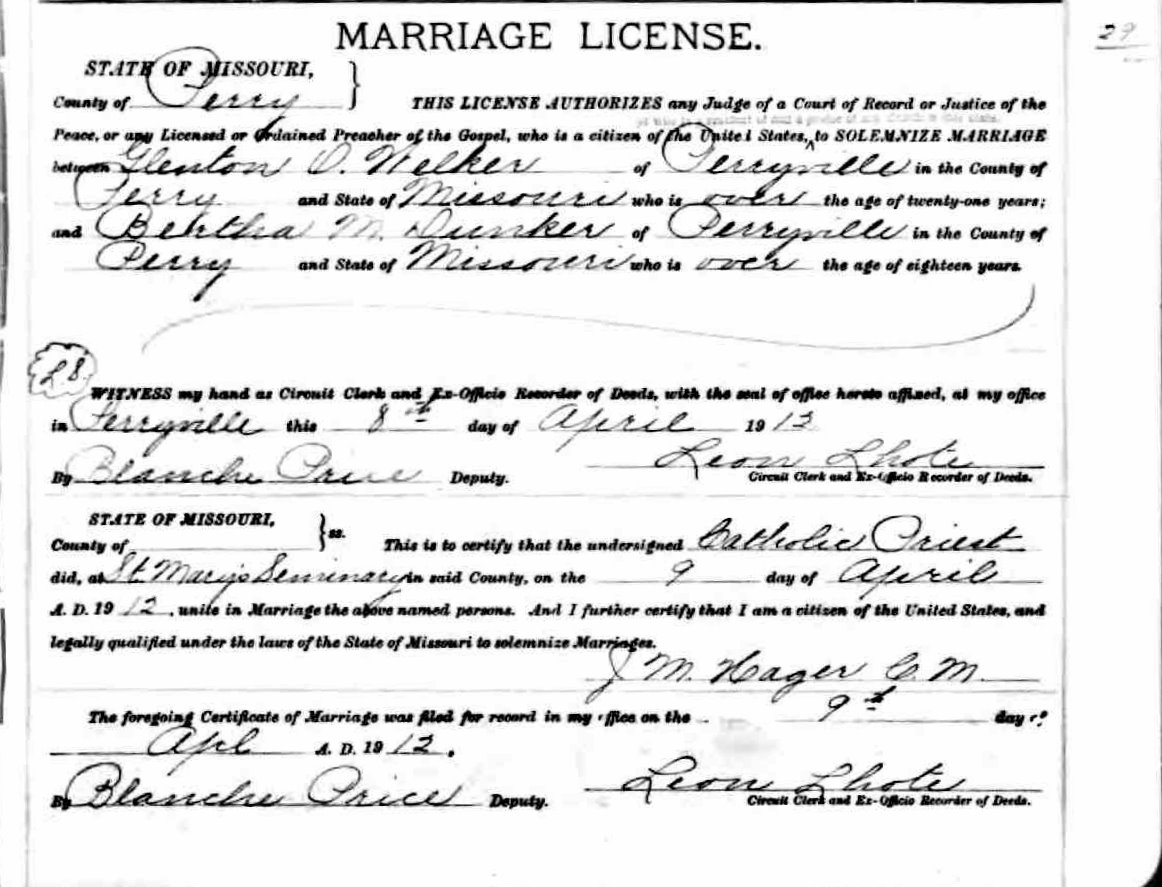 29
MARRIAGE LICENSE.
STATE OF MISSOURI,
County of Perry } THIS LICENSE AUTHORIZES any Judge of a Court of Record or Justice of the
Peace, or any Licensed or Ordained Preacher of the Gospel, who is a citizen of the United States, to SOLEMNIZE MARRIAGE
between Glenton O. Welker of Perryville in the County of
Perry and State of Missouri who is over the age of twenty-one years;
and Bertha M. Dunker of Perryville in the County of
Perry and State of Missouri who is over the age of eighteen years.
L S.
WITNESS my hand as Circuit Clerk and Ex-Officio Recorder of Deeds, with the seal of office hereto affixed, at my office
in Perryville this 8th day of April 1912
By Blanche Price Deputy. Leon Lhote
Circuit Clerk and Ex-Officio Recorder of Deeds.
STATE OF MISSOURI,
County of } ss. This is to certify that the undersigned Catholic Priest
did, at St. Mary's Seminary in said County, on the 9 day of April
A. D. 1912, unite in Marriage the above named persons. And I further certify that I am a citizen of the United States, and
legally qualified under the laws of the State of Missouri to solemnize Marriages.
J M. Hager C. M.
The foregoing Certificate of Marriage was filed for record in my office on the 9th day of
Apl A. D. 1912.
By Blanche Price Deputy. Leon Lhote
Circuit Clerk and Ex-Officio Recorder of Deeds.